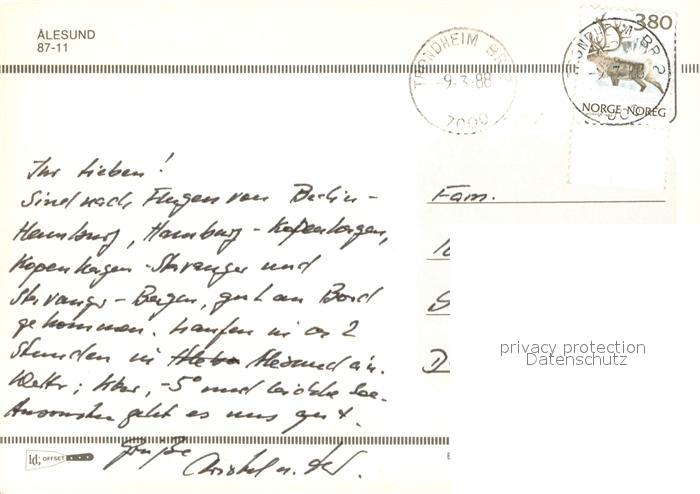 ÅLESUND
87-11
TRONDHEIM BR. 2
-9-3-88
7000
380
NORGE·NOREG
Ihr Lieben!
Sind nach Flügen von Berlin-
Hamburg, Hamburg - Kopenhagen,
Kopenhagen - Stavanger und
Stavanger - Bergen, gut an Bord
gekommen. Laufen in ca 2
Stunden in Alesund ein.
Wetter; klar, -5° und leichte See.
Ansonsten geht es uns gut.
Grüße
Fam.
privacy protection
Datenschutz
ld; OFFSET